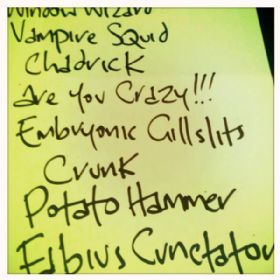 Window Wizard
Vampire Squid
Chadrick
Are You Crazy!!!
Embryonic Gillslits
Crunk
Potato Hammer
Fabius Cunctator